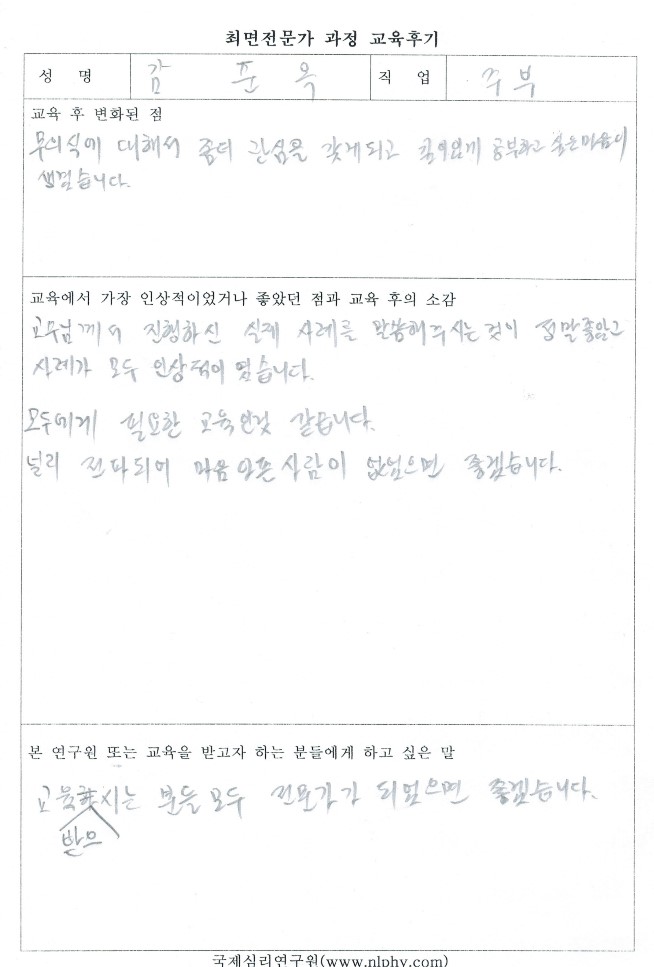 최면전문가 과정 교육후기
성 명 감 푼 옥 직 업 주 부
교육 후 변화된 점
무의식에 대해서 좀더 관심을 갖게되고 공부하고 싶은마음이
생겼습니다.
교육에서 가장 인상적이었거나 좋았던 점과 교육 후의 소감
교수님께서 진행하신 실제 사례를 말씀해주시는것이 정말좋았고
사례가 모두 인상적이 였습니다.
모두에게 필요한 교육인것 같습니다.
널리 전파되어 마음 아픈 사람이 없었으면 좋겠습니다.
본 연구원 또는 교육을 받고자 하는 분들에게 하고 싶은 말
교육 시는 분들 모두 전문가가 되었으면 좋겠습니다.
받으
국제심리연구원(www.nlphy.com)